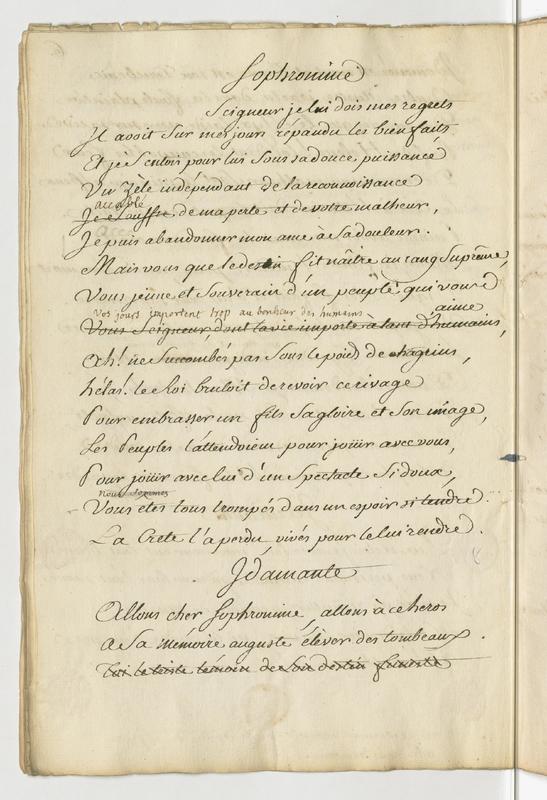 Sophronime
Seigneur je lui dois mes regrets
Il avoit sur mes jours répandu les bienfaits
Et je sentois pour lui sous sa douce puissance
Un Zèle indépendant de la reconnoissance
accablé
de ma perte et de votre malheur,
Je puis abandonner mon ame à sa douleur.
Mais vous que le destin fit naître au rang Suprême,
Vous jeune et Souverain d'un peuple qui vous
aime
Vos jours importent trop au bonheur des humains
Vous Seigneur, dont la vie importe à tant d'humains,
Ah! ne Succombés pas sous le poids de chagrins,
hélas! le Roi bruloit de revoir ce rivage
Pour embrasser un fils sa gloire et son image,
Les Peuples l'attendoient pour joüir avec vous,
Pour joüir avec lui d'un Spectacle Si doux,
Nous sommes
Vous etes tous trompés dans un espoir si tendre.
La Crete l'a perdu, vivés pour le lui rendre.
Idamante
Allons cher Sophronime, allons à ce heros
A sa Mémoire auguste élever des tombeaux.
Lui le triste témoin de Son destin funeste